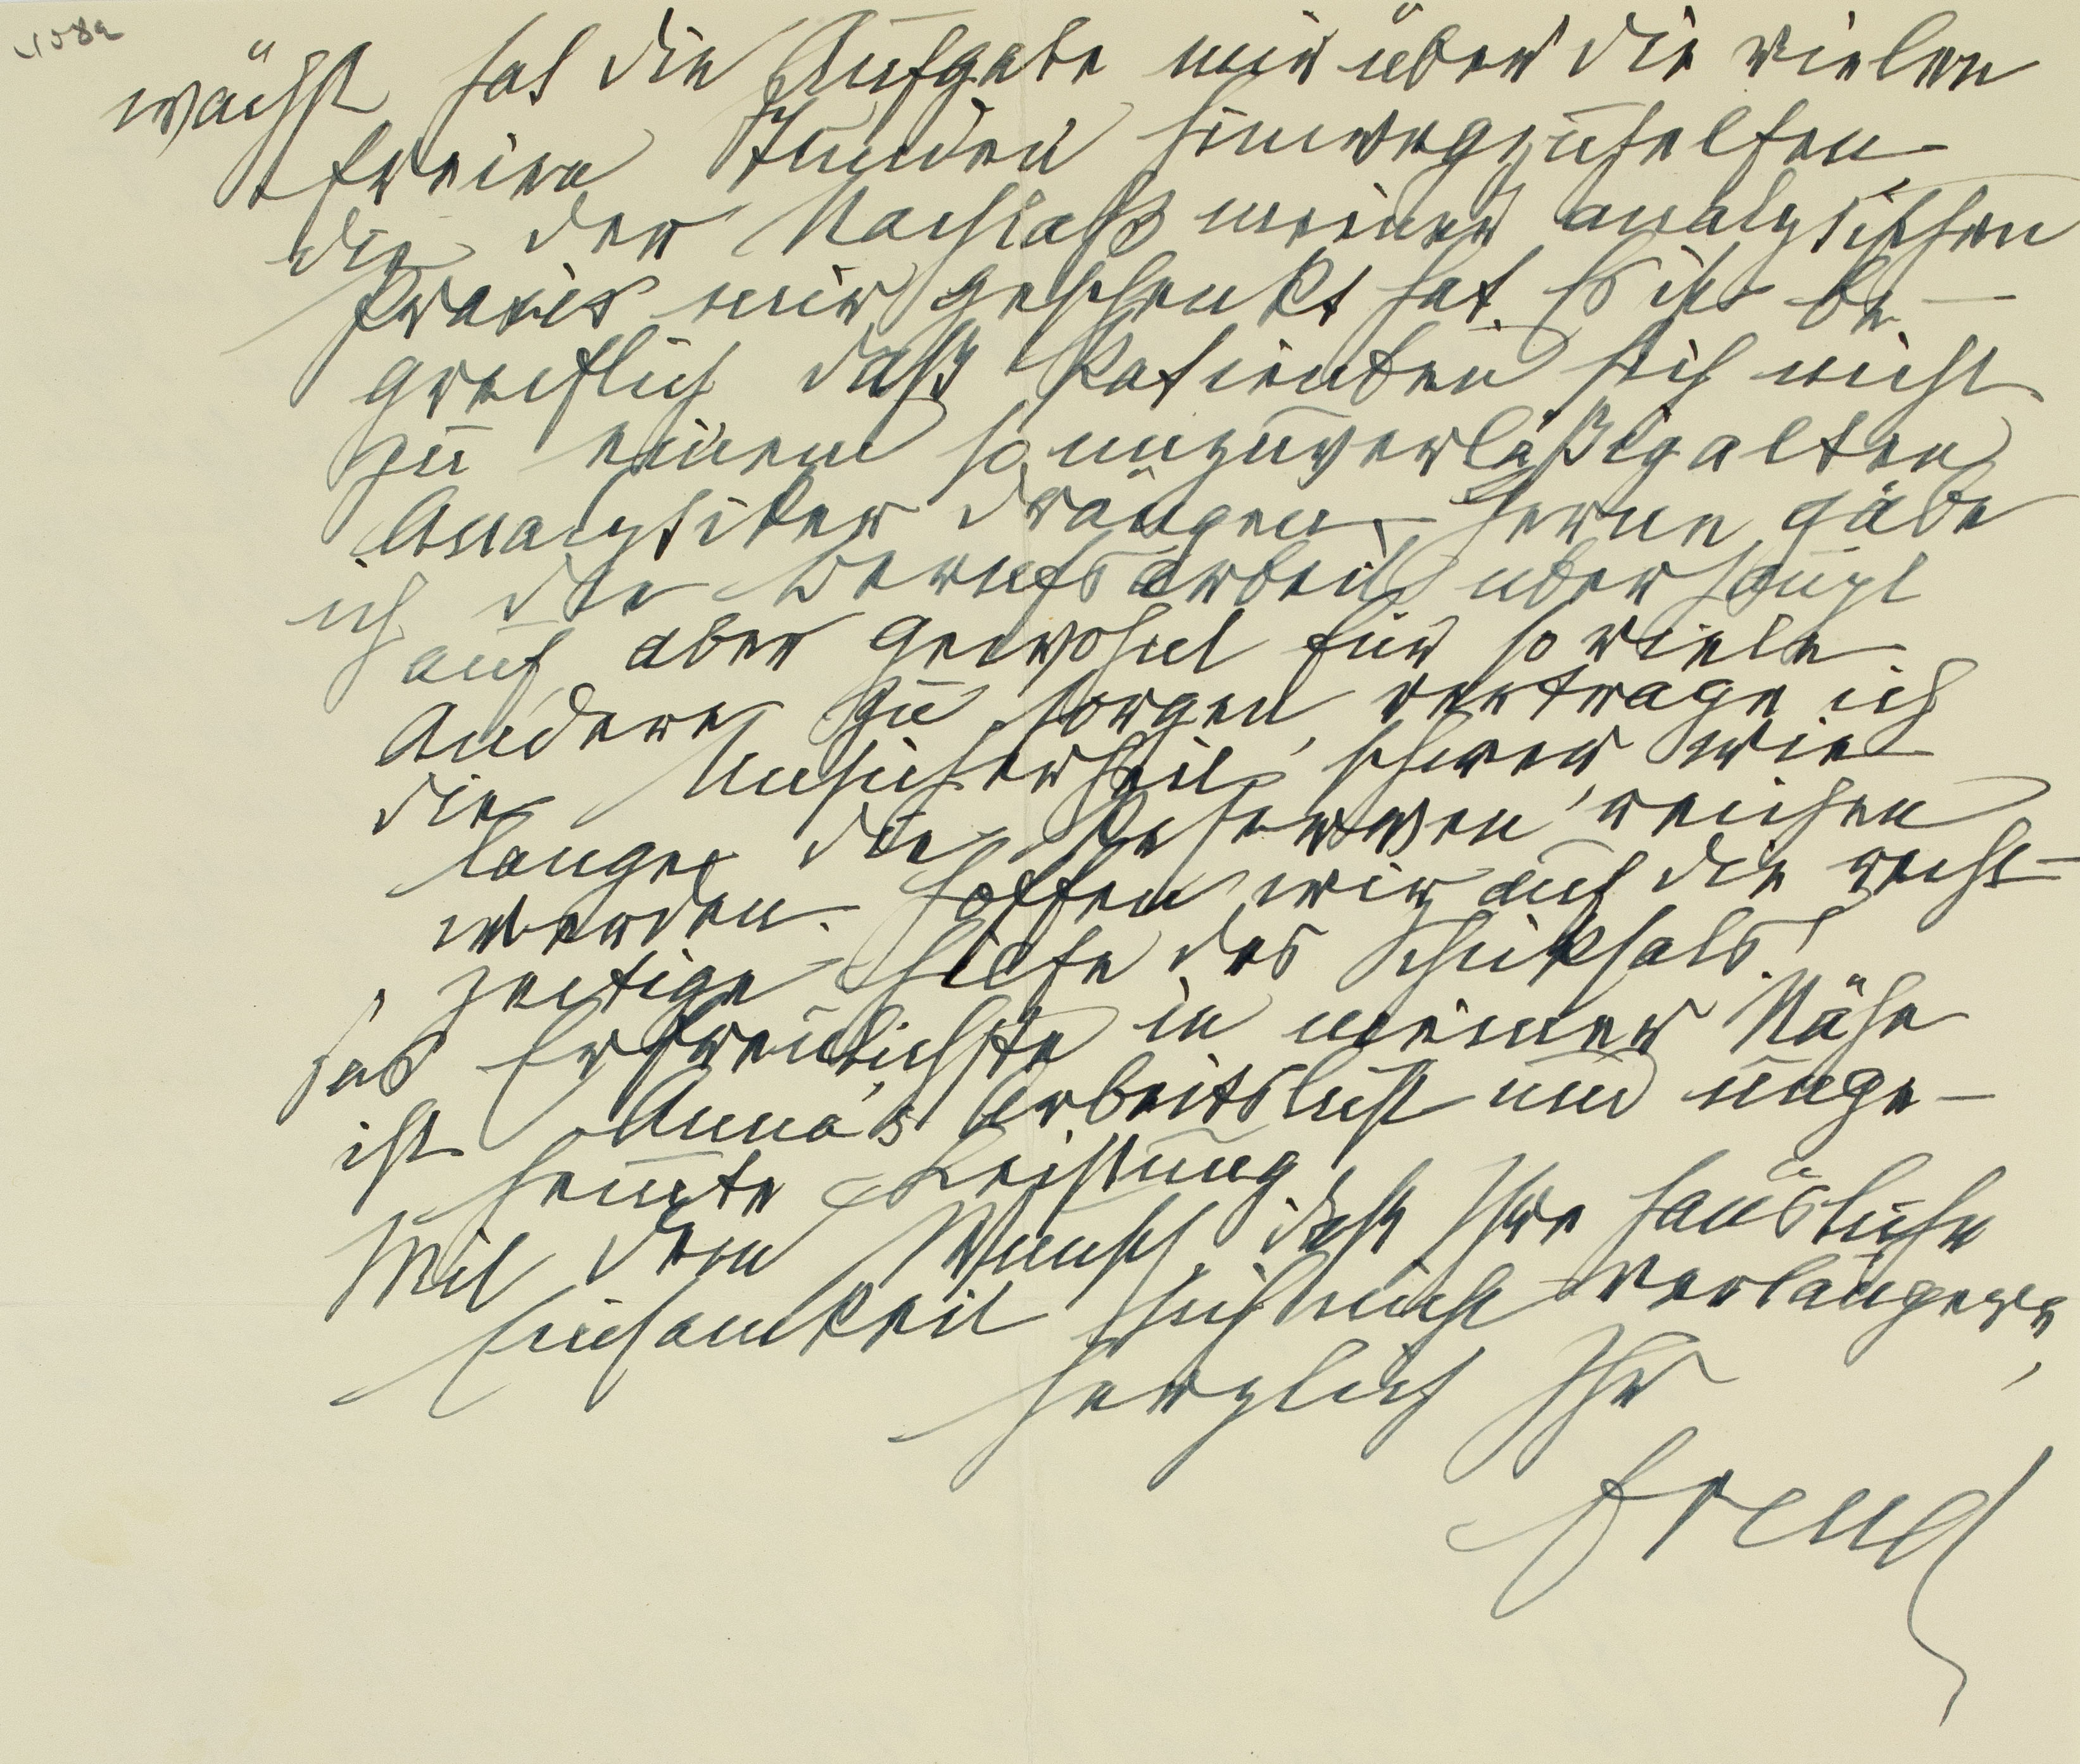 1058a
wächst hat die Aufgabe mir über die vielen
freien Stunden hinwegzuhelfen
die der Nachlaß meiner analytischen
Praxis mir geschenkt hat. Es ist be-
greiflich daß Patienten sich nicht
zu einem so unzuverläßig alten
Analytiker drängen. Gerne gäbe
ich die Berufsarbeit überhaupt
auf, aber gewohnt für so viele
Andere zu sorgen, vertrage ich
die Unsicherheit schwer wie
lange die Reserven reichen
werden. Hoffen wir auf die recht-
zeitige Hilfe des Schicksals!
Das Erfreulichste in meiner Nähe
ist Anna's Arbeitslust und unge-
hemmte Leistung
Mit dem Wunsch, daß Ihre häusliche
Einsamkeit sich nicht verlängere,
herzlich Ihr
Freud